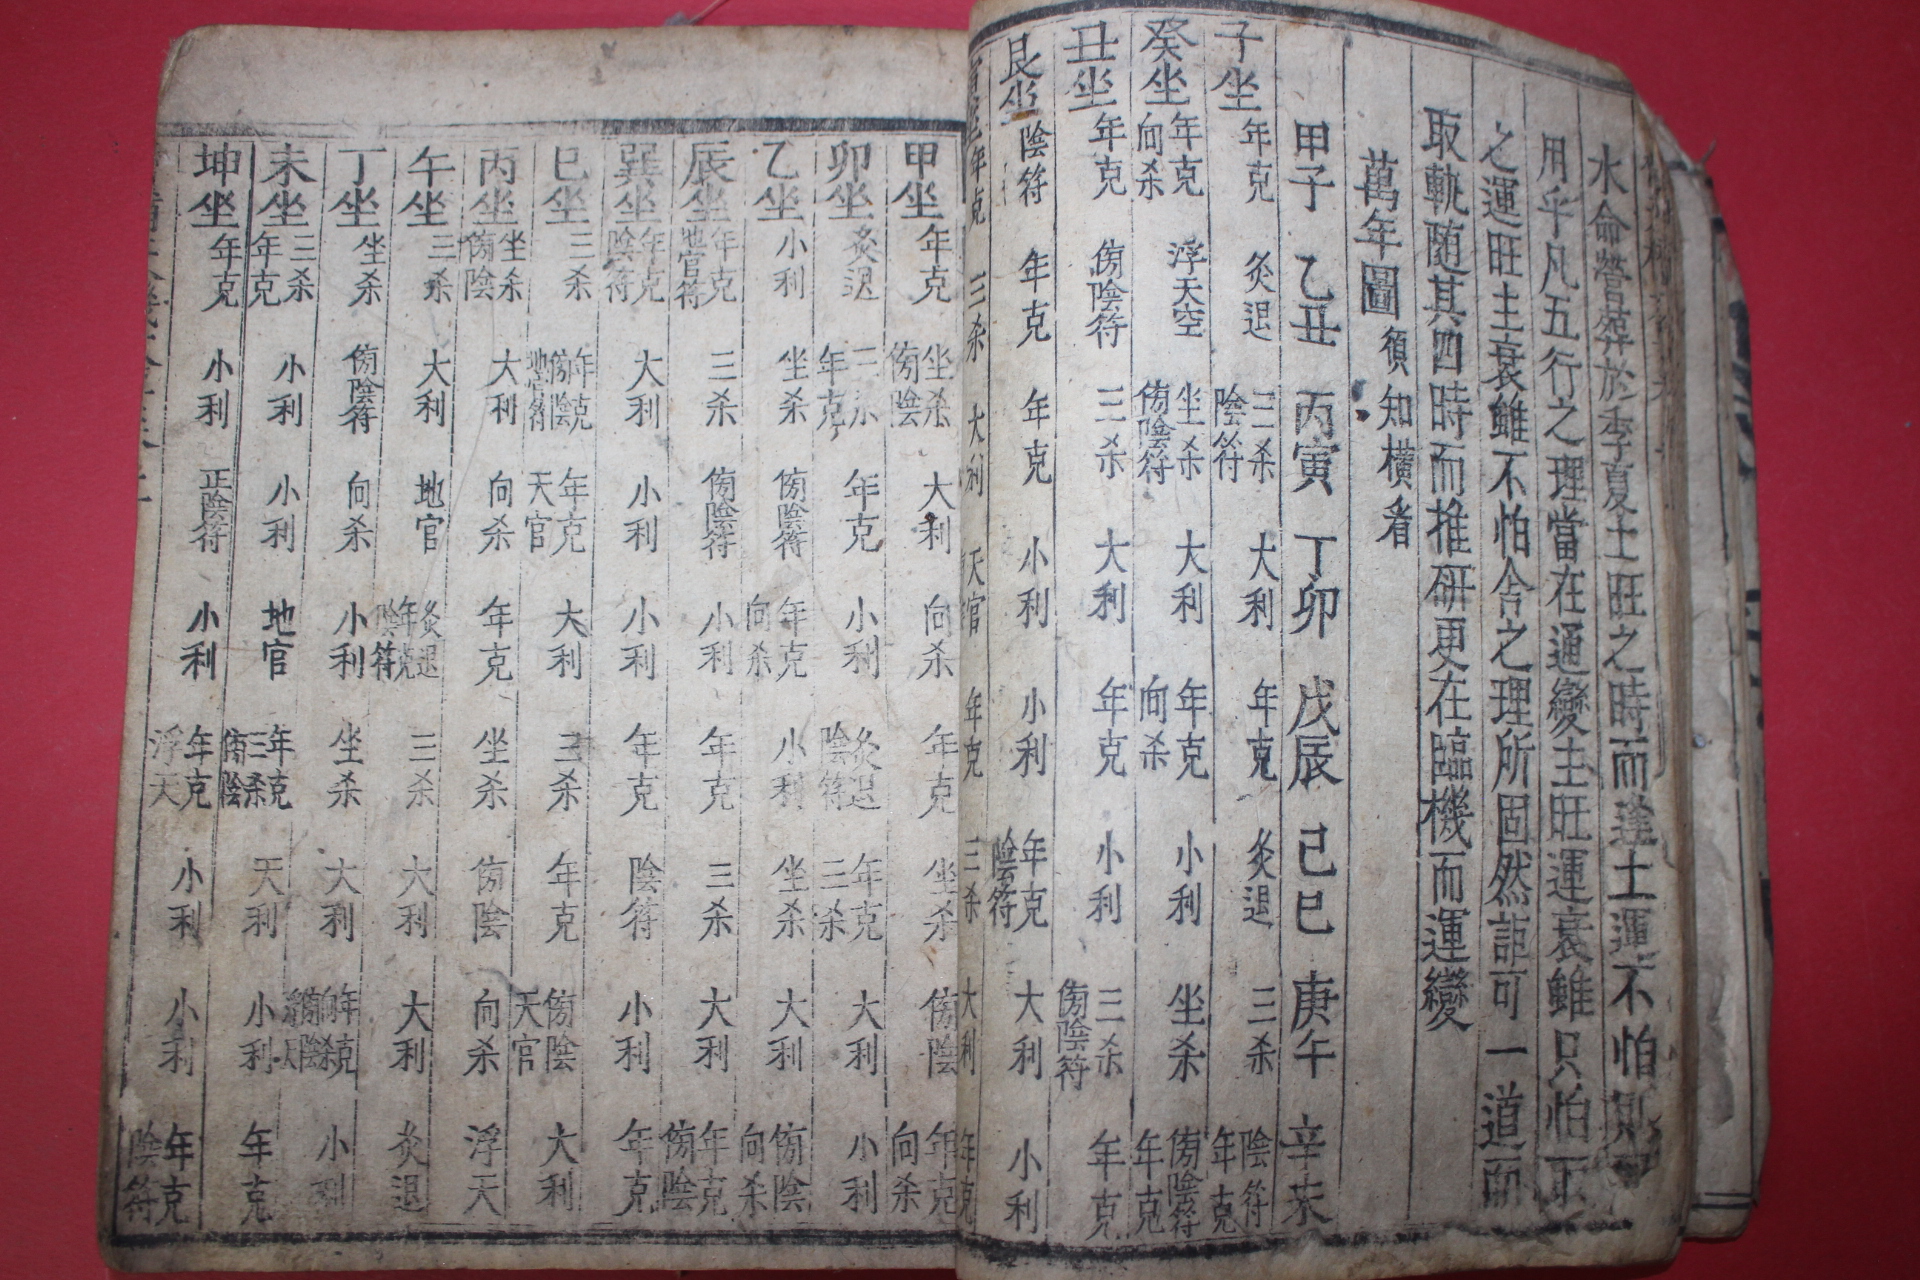 水命營葬於季夏土旺之時而逢土運不怕
用乎凡五行之理當在通變主旺運衰雖只怕
之運旺主衰雖不怕合之理所固然詎可一道而
取軌随其四時而推硏更在臨機而運變
萬年圖 須知橫看
甲子 乙丑 丙寅 丁卯 戊辰 己巳 庚午 辛未
子坐 年克 灸退 三杀 陰符 大利 年克 灸退 三杀 陰符 年克
癸坐 年克 向杀 浮天空 坐杀 傍陰符 大利 年克 向杀 小利 坐杀 傍陰符 年克
丑坐 年克 傍陰符 三杀 大利 年克 小利 三杀 傍陰符 年克
艮坐 陰符 年克 年克 小利 小利 年克 陰符 大利 小利
年克 三杀 大利 天官 年克 三杀 大利 年克
甲坐 年克 坐杀 傍陰 大利 向杀 年克 坐杀 傍陰 年克 向杀
卯坐 灸退 三杀 年克 年克 小利 灸退 陰符 年克 三杀 大利 小利
乙坐 小利 坐杀 傍陰符 年克 向杀 小利 坐杀 大利 傍陰 向杀
辰坐 年克 地官符 三杀 傍陰符 小利 年克 三杀 大利 年克 傍陰
巽坐 年克 陰符 大利 小利 小利 年克 陰符 小利 年克
巳坐 三杀 年克 傍陰 地官符 年克 天官 大利 三杀 年克 傍陰 天官 大利
丙坐 坐杀 傍陰 大利 向杀 年克 坐杀 傍陰 向杀 浮天
午坐 三杀 大利 地官 灸退 年克 陰符 三杀 大利 大利 灸退
丁坐 坐杀 傍陰符 向杀 小利 坐杀 大利 年克 向杀 傍陰 浮天 小利
未坐 三杀 年克 小利 小利 地官 年克 三杀 傍陰 天利 小利 年克
坤坐 年克 小利 正陰符 小利 年克 浮天 小利 小利 年克 陰符